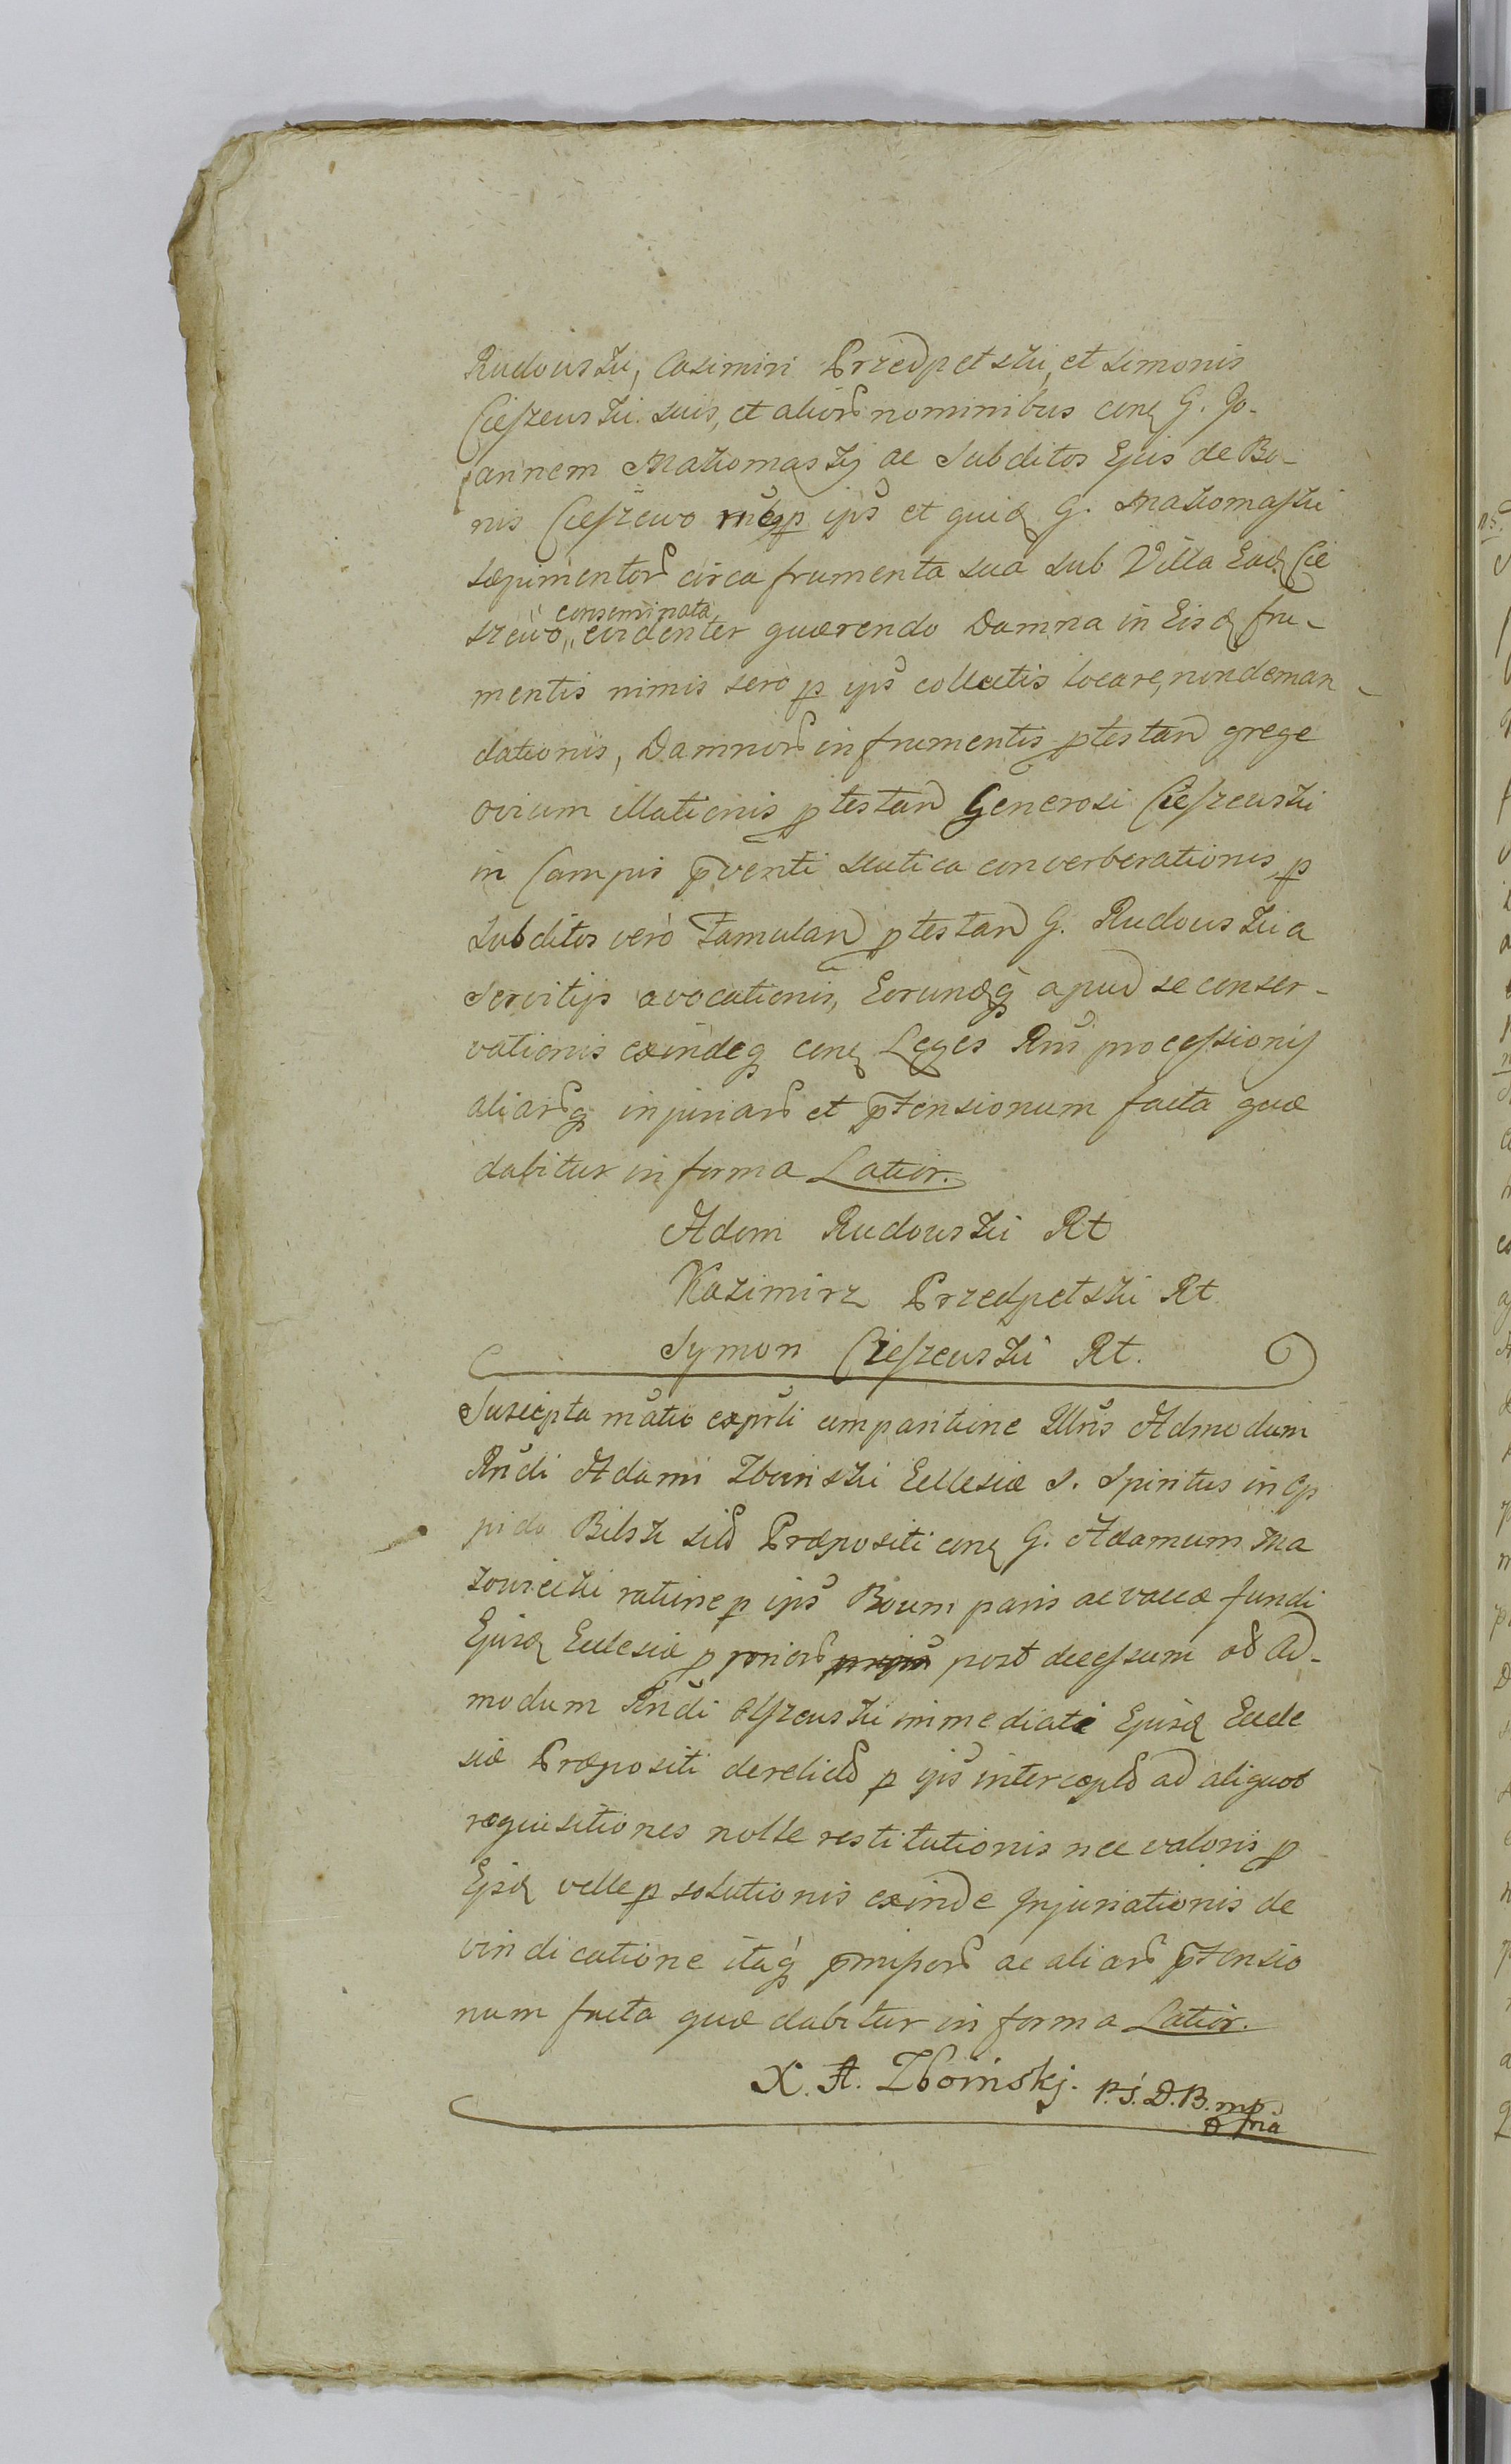 Rudowski, Casimiri Przedpetski, et Simonis
Cieszewski suis, et alior nominibus conq G. Jo-
annem Małomaskj ac Subditos Ejus de Bo-
nis Cieszewo ip̄s et quid G. Małomaski
sæpimentor circa frumenta sua sub Villa Ead Cie
szewo, evidenter quærendo Damna in Eisd fru-
conseminata
mentis nimis sero p ip̄s collectis locare, nondeman
dationis, Damnor in frumentis ptestan grege
ovium illationis ptestan Generosi Cieszewski
in Campis pventi scutica converberationis, p
Subditos vero Famulan ptestan G. Rudowski a
Servitijs avocationis, Eorundq apud se conser-
vationis exindeq conq Leges Rni processionis
aliarq injuriar et ptensionum facta quæ
dabitur in forma Latior.
Adam Rudowski Rt
Kazimirz Przedpetski Rt
Symon Cieszewski Rt.
Suscepta mātio exprli comparitione Illris Admodum
Rndi Adami Zboinski Ecclesiæ S. Spiritus in Op
pido Bilsk sit Præpositi conq G. Adamum Ma
kowiecki ratione p ip̄s Boum paris ac vaccæ fundi
Ejusd Ecclesiæ p prior post decessum od Ad-
modum Rndi Olszewski immediate Ejusd Eccle
siæ Præpositi derelict p ip̄s intercept ad aliquot
requisitiones nolle restitutionis nec valoris p
Ejsd velle p solutionis exinde Injuriationis de
vindicatione itaq pmissor ac aliar ptensio
num facta quæ dabitur in forma Latior.
X. A. Zboinskj. P. S. D. B. mp